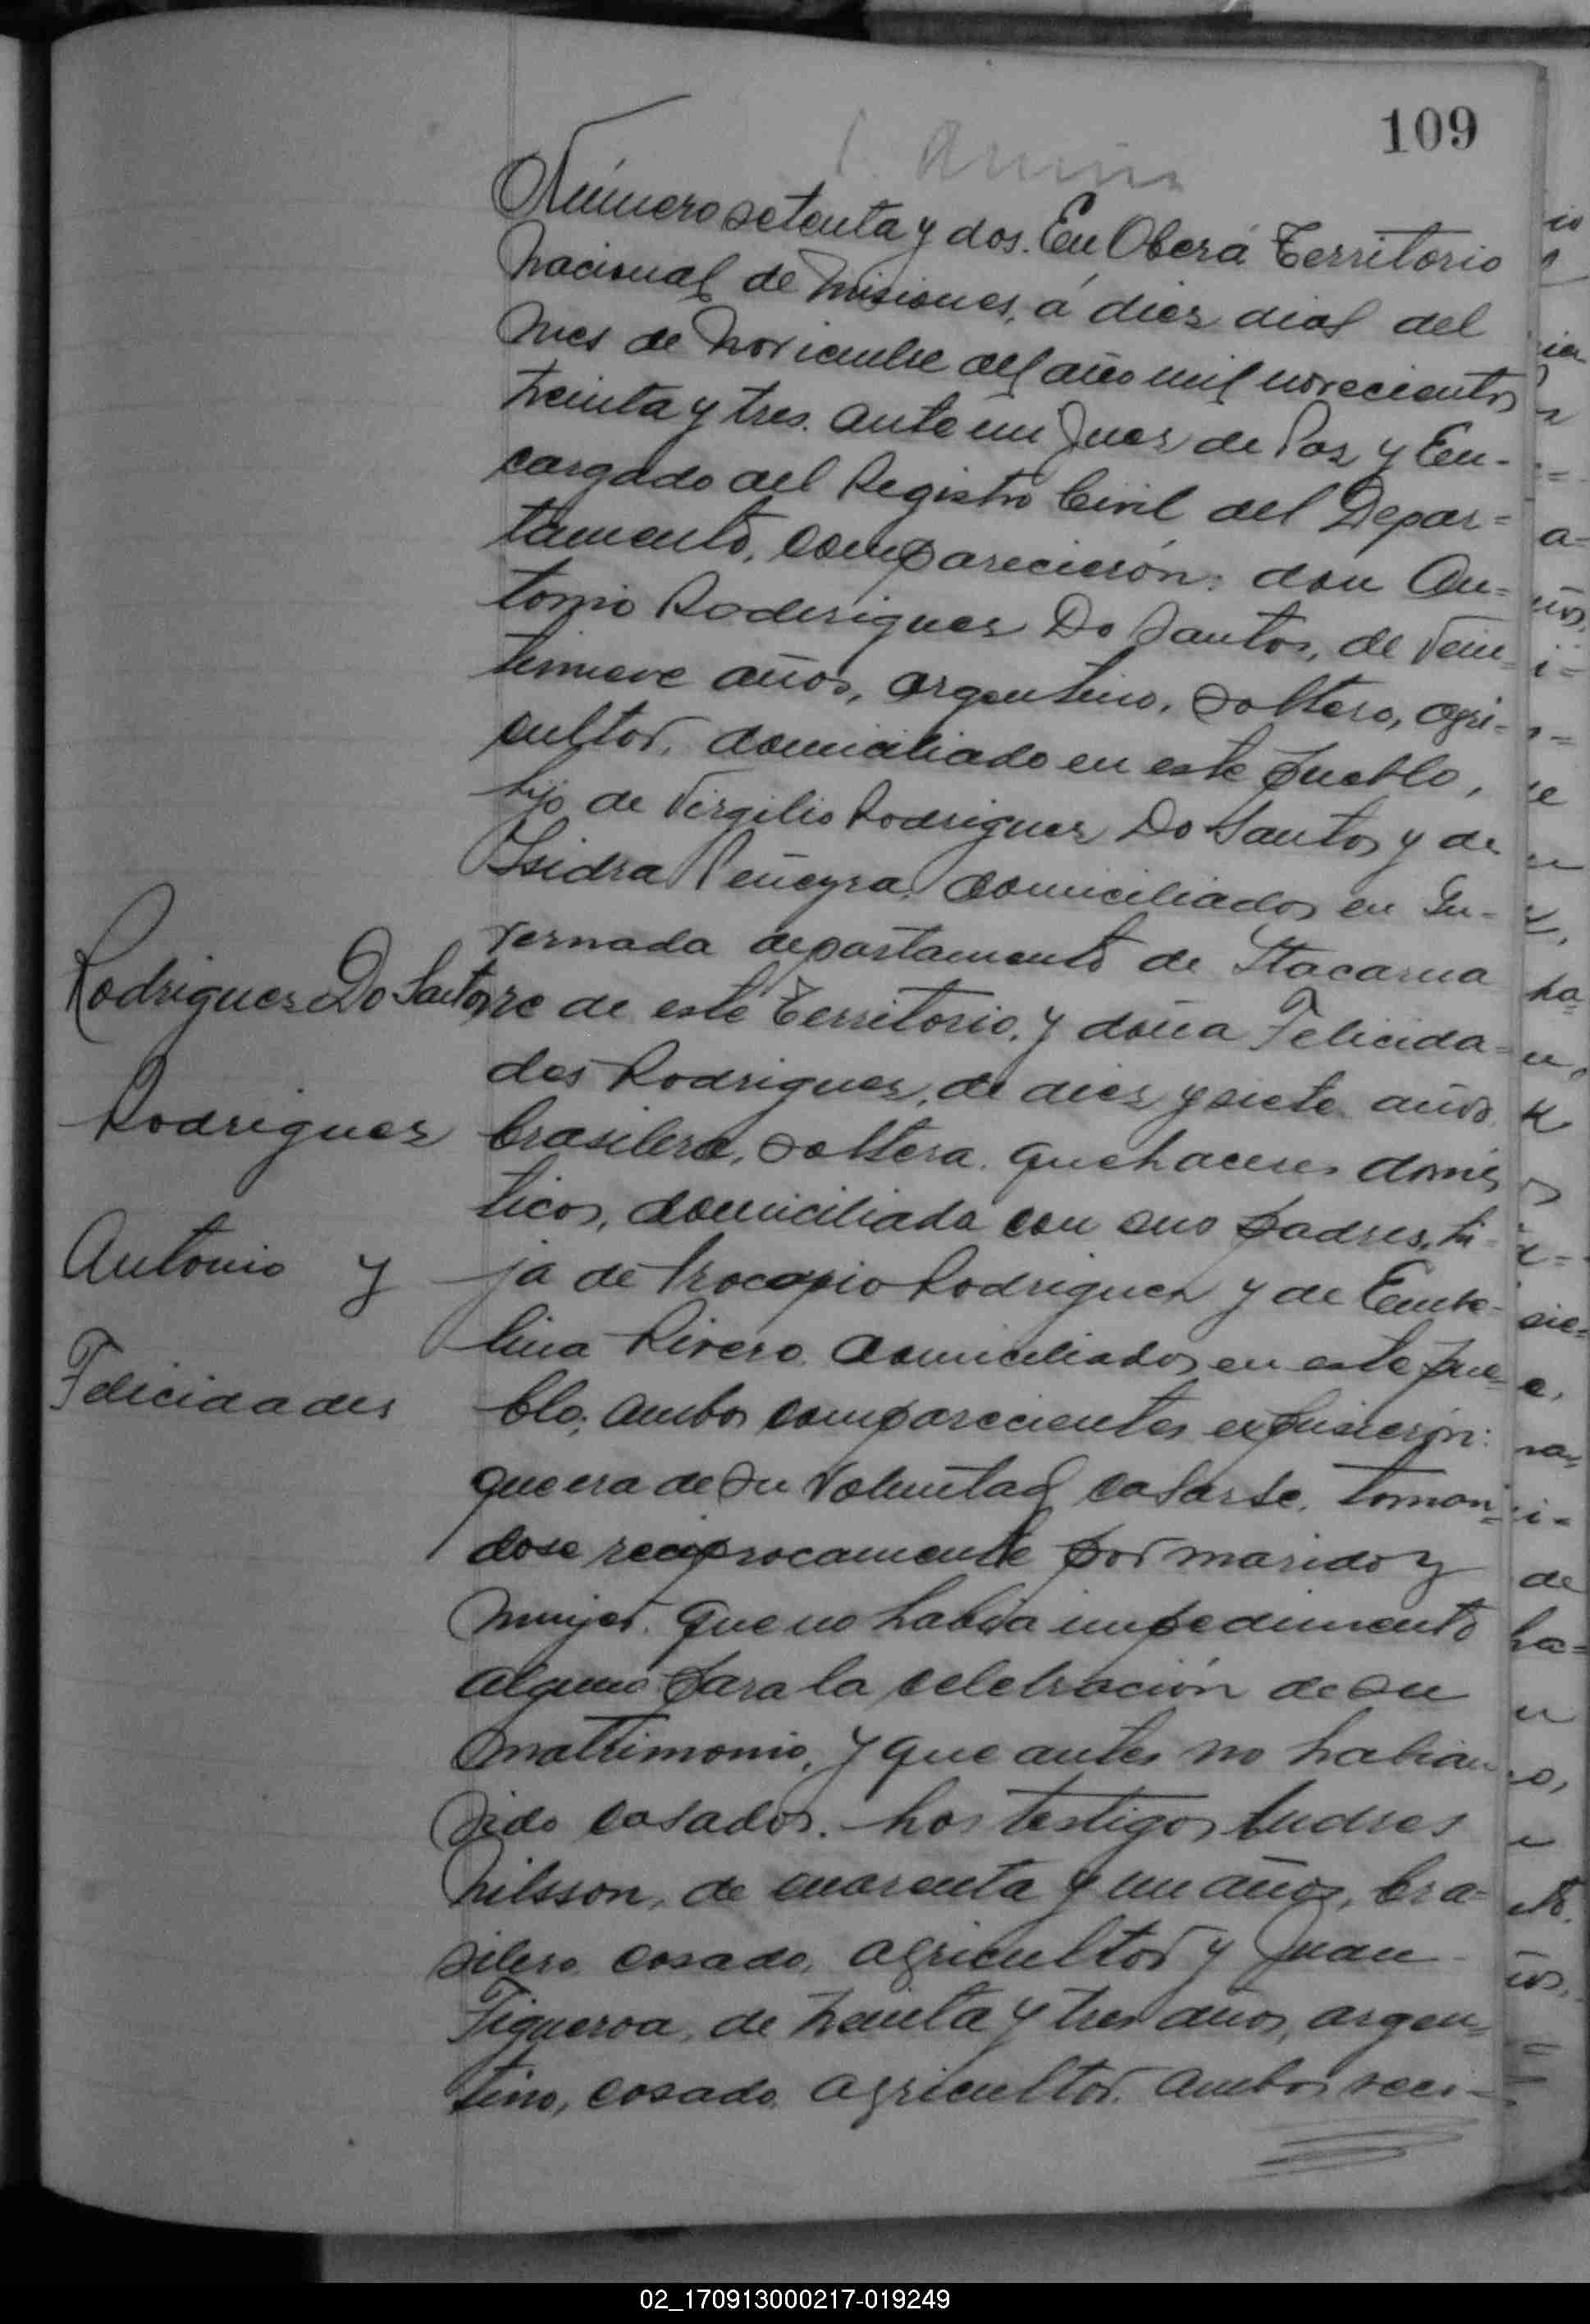 109
Número setenta y dos. En Oberá Territorio
Nacional de Misiones, á diez dias del
mes de Noviembre del año mil novecientos
treinta y tres. ante mi Juez de Paz y En-
cargado del Registro Civil del Depar=
tamento, comparecierón: don An=
tonio Roderiguez Do Santos, de vein
tinueve años, argentino, soltero, agri-
cultor, domiciliado en este pueblo,
hijo de Virgilio Rodriguez Do Santos y de
Isidra domiciliados en In-
vernada departamento de Itacarua
re de este Territorio, y doña Felicida-
des Rodriguez, de diez y siete años
brasilera, soltera, quehaceres domés
ticos, domiciliada con sus padres, hi-
ja de Procopio Rodriguez y de
lina Rivero domiciliados en este pue-
blo; ambos comparecientes expusierón:
que era de su voluntad casarse, toman-
dose reciprocamente por marido y
mujer. Que no habia impedimento
alguno para la celebración de su
matrimonio, y que antes no habian
sido casados. Los testigos Andres
Nilsson, de cuarenta y un años, bra=
silero casado, agricultor y Juan
Figueroa, de treinta y tres años, argen-
tino, casado, agricultor. ambos veci-
Rodriguez Do Santos
Rodriguez
Antonio y
Felicidades
02_170913000217-019249